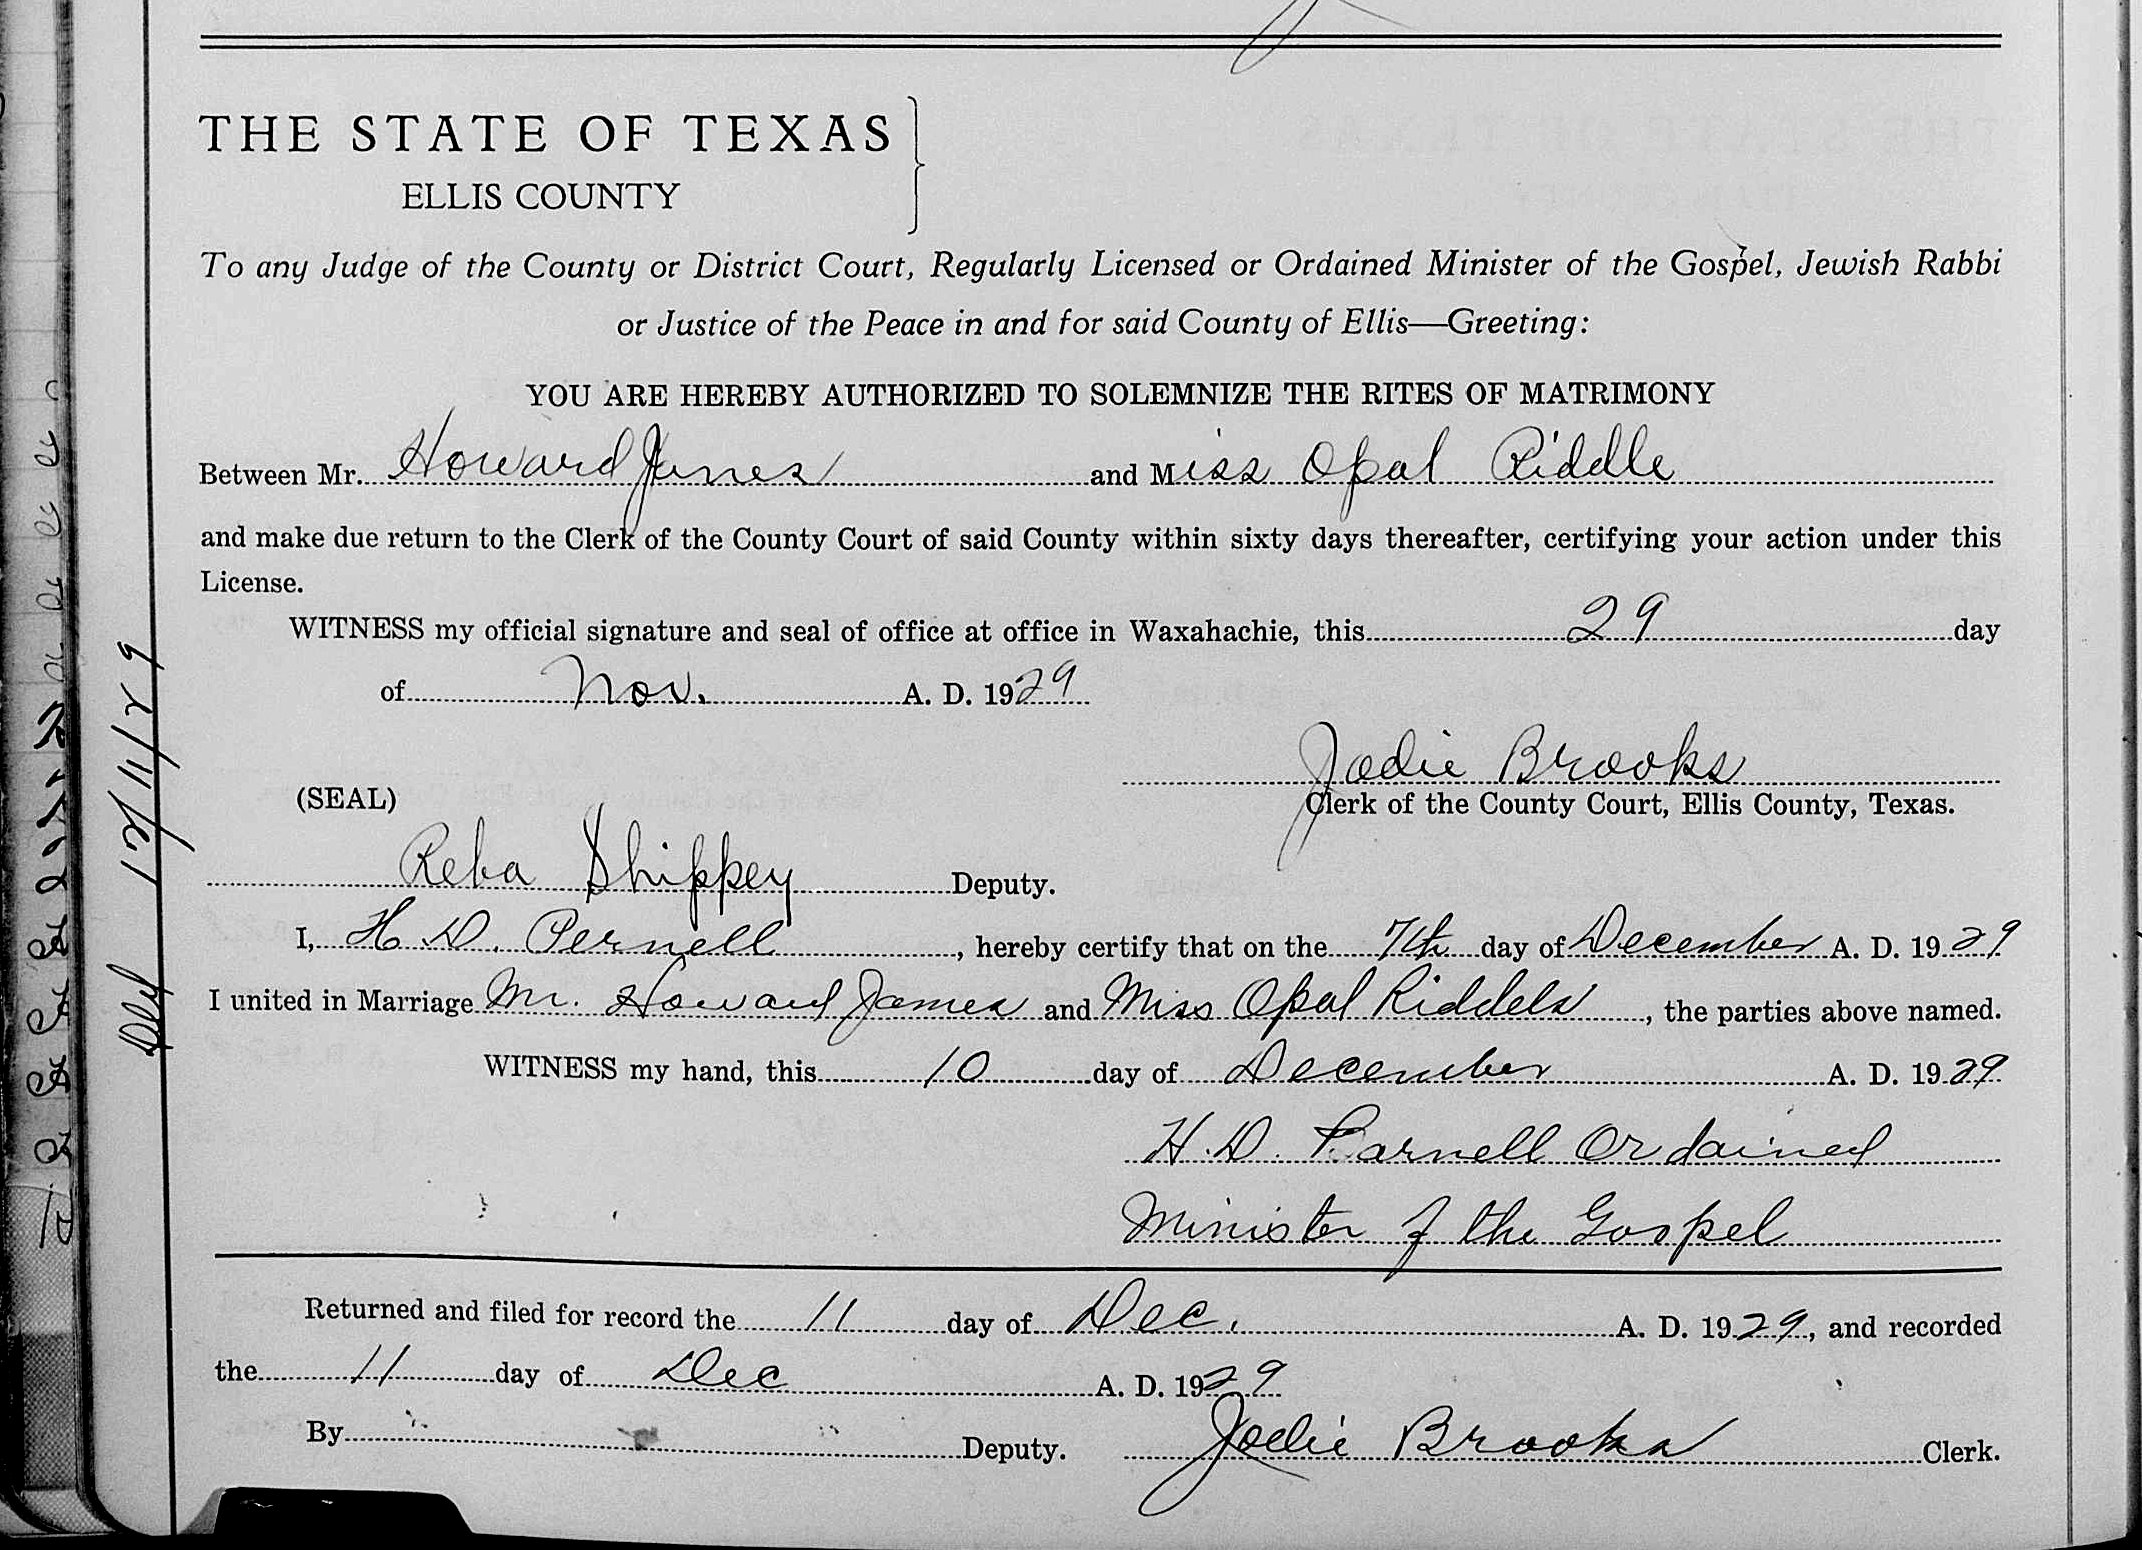 THE STATE OF TEXAS
ELLIS COUNTY
To any Judge of the County or District Court, Regularly Licensed or Ordained Minister of the Gospel, Jewish Rabbi
or Justice of the Peace in and for said County of Ellis—Greeting:
YOU ARE HEREBY AUTHORIZED TO SOLEMNIZE THE RITES OF MATRIMONY
Between Mr. Howard James and Miss Opal Riddle
and make due return to the Clerk of the County Court of said County within sixty days thereafter, certifying your action under this
License.
WITNESS my official signature and seal of office at office in Waxahachie, this 29 day
of Nov. A. D. 1929
Jodie Brooks
(SEAL) Clerk of the County Court, Ellis County, Texas.
Reba Shippey Deputy.
I, H. D. Pernell, hereby certify that on the 7th day of December A. D. 1929
I united in Marriage Mr. Howard James and Miss Opal Riddels, the parties above named.
WITNESS my hand, this 10 day of December A. D. 1929
H. D. Parnell Ordained
Minister of the Gospel
Returned and filed for record the 11 day of Dec. A. D. 1929, and recorded
the 11 day of Dec A. D. 1929
By Deputy. Jodie Brooks Clerk.
Del 12/11/29